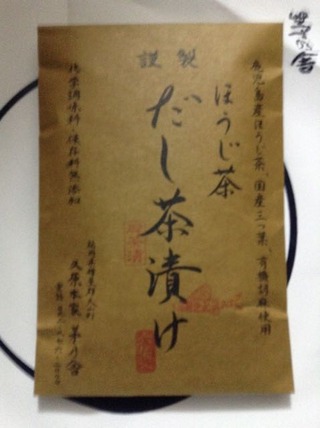 謹製
鹿児島産ほうじ茶、国産三つ葉、有機胡麻使用
ほうじ茶
だし茶漬け
化学調味料・保存料無添加
久原本家 茅乃舎
茅乃舎